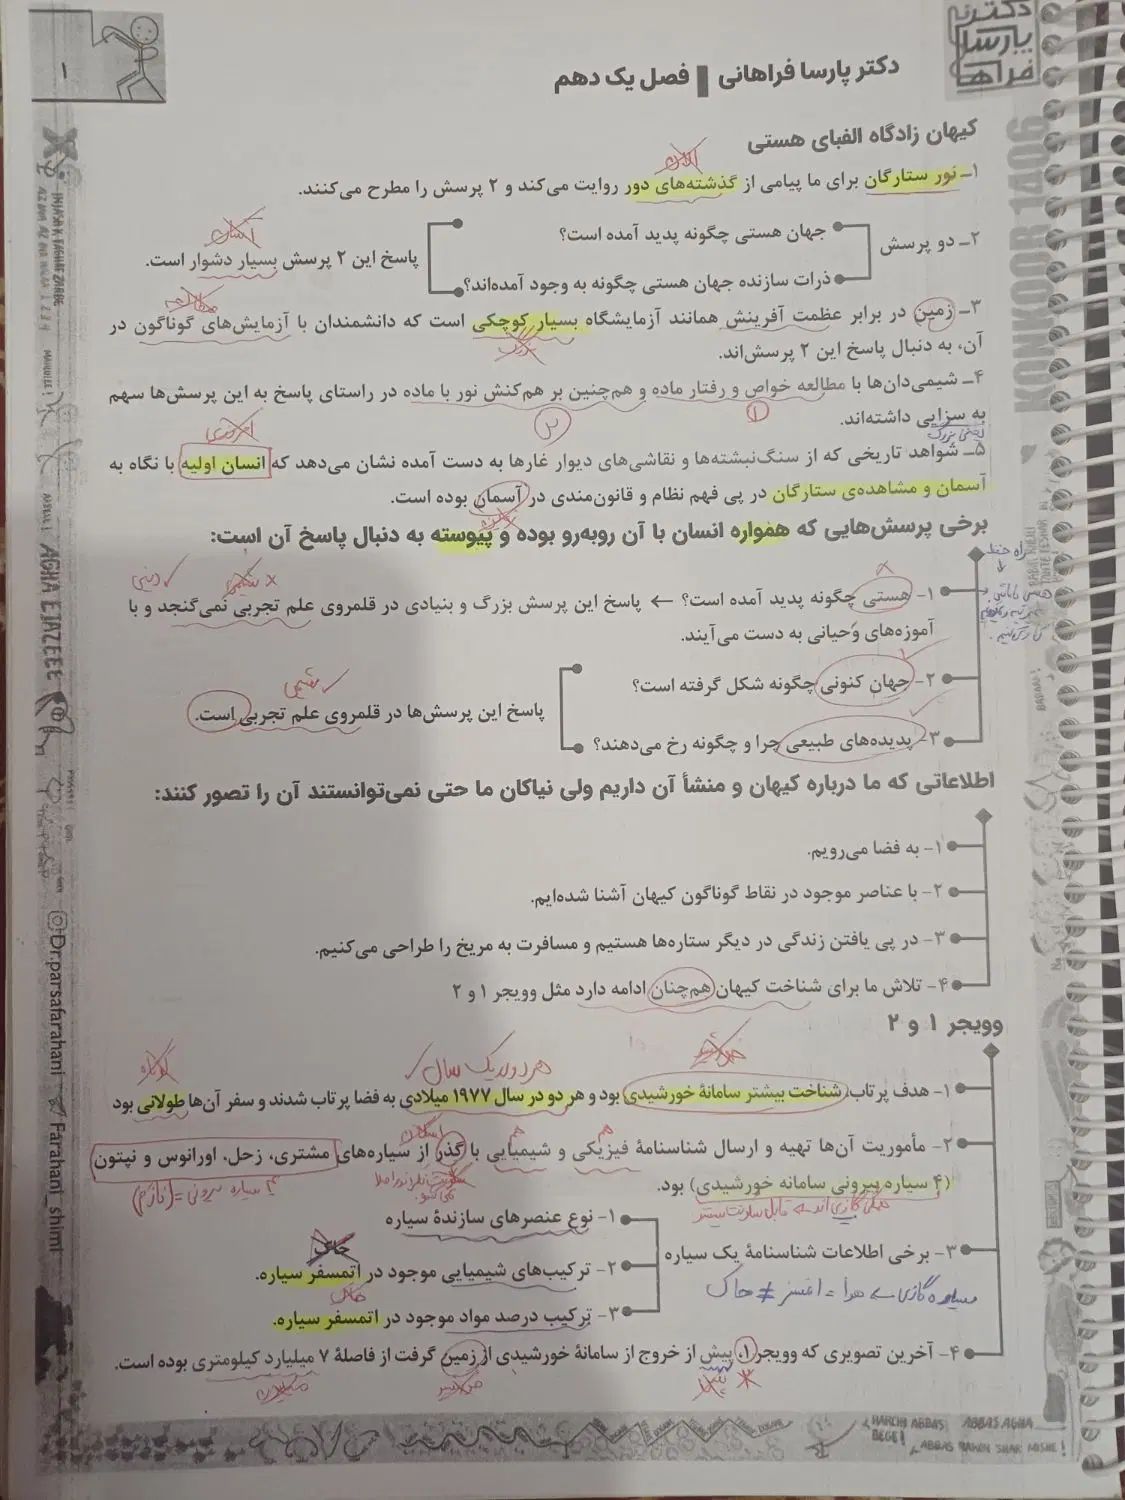 دکتر پارسا فراهانی
۱
دکتر پارسا فراهانی | فصل یک دهم
KONKOOR 1406
کیهان زادگاه الفبای هستی
۱ـ نور ستارگان برای ما پیامی از گذشته‌های دور روایت می‌کند و ۲ پرسش را مطرح می‌کنند.
۲ـ دو پرسش
جهان هستی چگونه پدید آمده است؟
ذرات سازنده جهان هستی چگونه به وجود آمده‌اند؟
آسان
پاسخ این ۲ پرسش بسیار دشوار است.
۳ـ زمین در برابر عظمت آفرینش همانند آزمایشگاه بسیار کوچکی است که دانشمندان با آزمایش‌های گوناگون در
بزرگ
آن، به دنبال پاسخ این ۲ پرسش‌اند.
۴ـ شیمی‌دان‌ها با مطالعه خواص و رفتار ماده و هم‌چنین بر هم‌کنش نور با ماده در راستای پاسخ به این پرسش‌ها سهم
۱
۲
به سزایی داشته‌اند.
یعنی بزرگ
امروزی
۵ـ شواهد تاریخی که از سنگ‌نبشته‌ها و نقاشی‌های دیوار غارها به دست آمده نشان می‌دهد که انسان اولیه با نگاه به
آسمان و مشاهده‌ی ستارگان در پی فهم نظام و قانون‌مندی در آسمان بوده است.
زمین
برخی پرسش‌هایی که همواره انسان با آن روبه‌رو بوده و پیوسته به دنبال پاسخ آن است:
راه حفظ
دینی
شیمی
۱- هستی چگونه پدید آمده است؟ ← پاسخ این پرسش بزرگ و بنیادی در قلمروی علم تجربی نمی‌گنجد و با
آموزه‌های وَحیانی به دست می‌آیند.
۲- جهان کنونی چگونه شکل گرفته است؟
۳- پدیده‌های طبیعی چرا و چگونه رخ می‌دهند؟
شیمی
پاسخ این پرسش‌ها در قلمروی علم تجربی است.
اطلاعاتی که ما درباره کیهان و منشأ آن داریم ولی نیاکان ما حتی نمی‌توانستند آن را تصور کنند:
۱- به فضا می‌رویم.
۲- با عناصر موجود در نقاط گوناگون کیهان آشنا شده‌ایم.
۳- در پی یافتن زندگی در دیگر ستاره‌ها هستیم و مسافرت به مریخ را طراحی می‌کنیم.
۴- تلاش ما برای شناخت کیهان هم‌چنان ادامه دارد مثل وویجر ۱ و ۲
وویجر ۱ و ۲
خورشید
هر دو در یک سال
کوتاه
۱- هدف پرتاب، شناخت بیشتر سامانهٔ خورشیدی بود و هر دو در سال ۱۹۷۷ میلادی به فضا پرتاب شدند و سفر آن‌ها طولانی بود
۲- مأموریت آن‌ها تهیه و ارسال شناسنامهٔ فیزیکی و شیمیایی با گذر از سیاره‌های مشتری، زحل، اورانوس و نپتون
(۴ سیاره بیرونی سامانه خورشیدی) بود.
۴ سیاره بیرونی = (گازی)
۳- برخی اطلاعات شناسنامهٔ یک سیاره
۱- نوع عنصرهای سازندهٔ سیاره
خاک
۲- ترکیب‌های شیمیایی موجود در اتمسفر سیاره.
خاک
۳- ترکیب درصد مواد موجود در اتمسفر سیاره.
سیاره گازی ← هوا = اتمسفر ≠ خاک
۴- آخرین تصویری که وویجر ۱، پیش از خروج از سامانهٔ خورشیدی از زمین گرفت از فاصلهٔ ۷ میلیارد کیلومتری بوده است.
AGHA EJAZEEE
@Dr.parsafarahani
Farahani_shimi
HARCHI ABBAS BEGE!
ABBAS AGHA